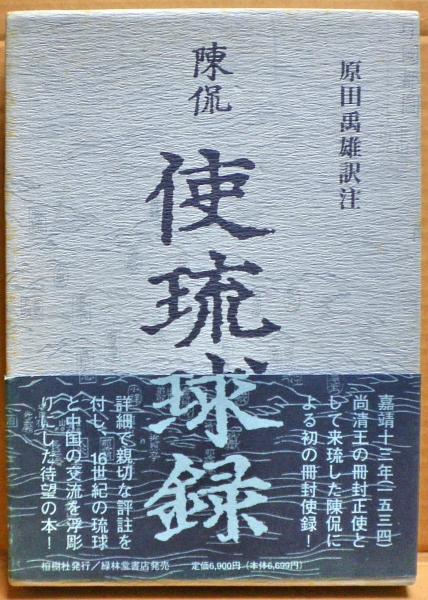 原田禹雄訳注
陳侃
使琉球録
嘉靖十三年(一五三四)
尚清王の冊封正使と
して来琉した陳侃に
よる初の冊封使録!
詳細で親切な評註を
付し、16世紀の琉球
と中国の交流を浮彫
りにした待望の本!
榕樹社発行/緑林堂書店発売
定価6,900円(本体6,699円)